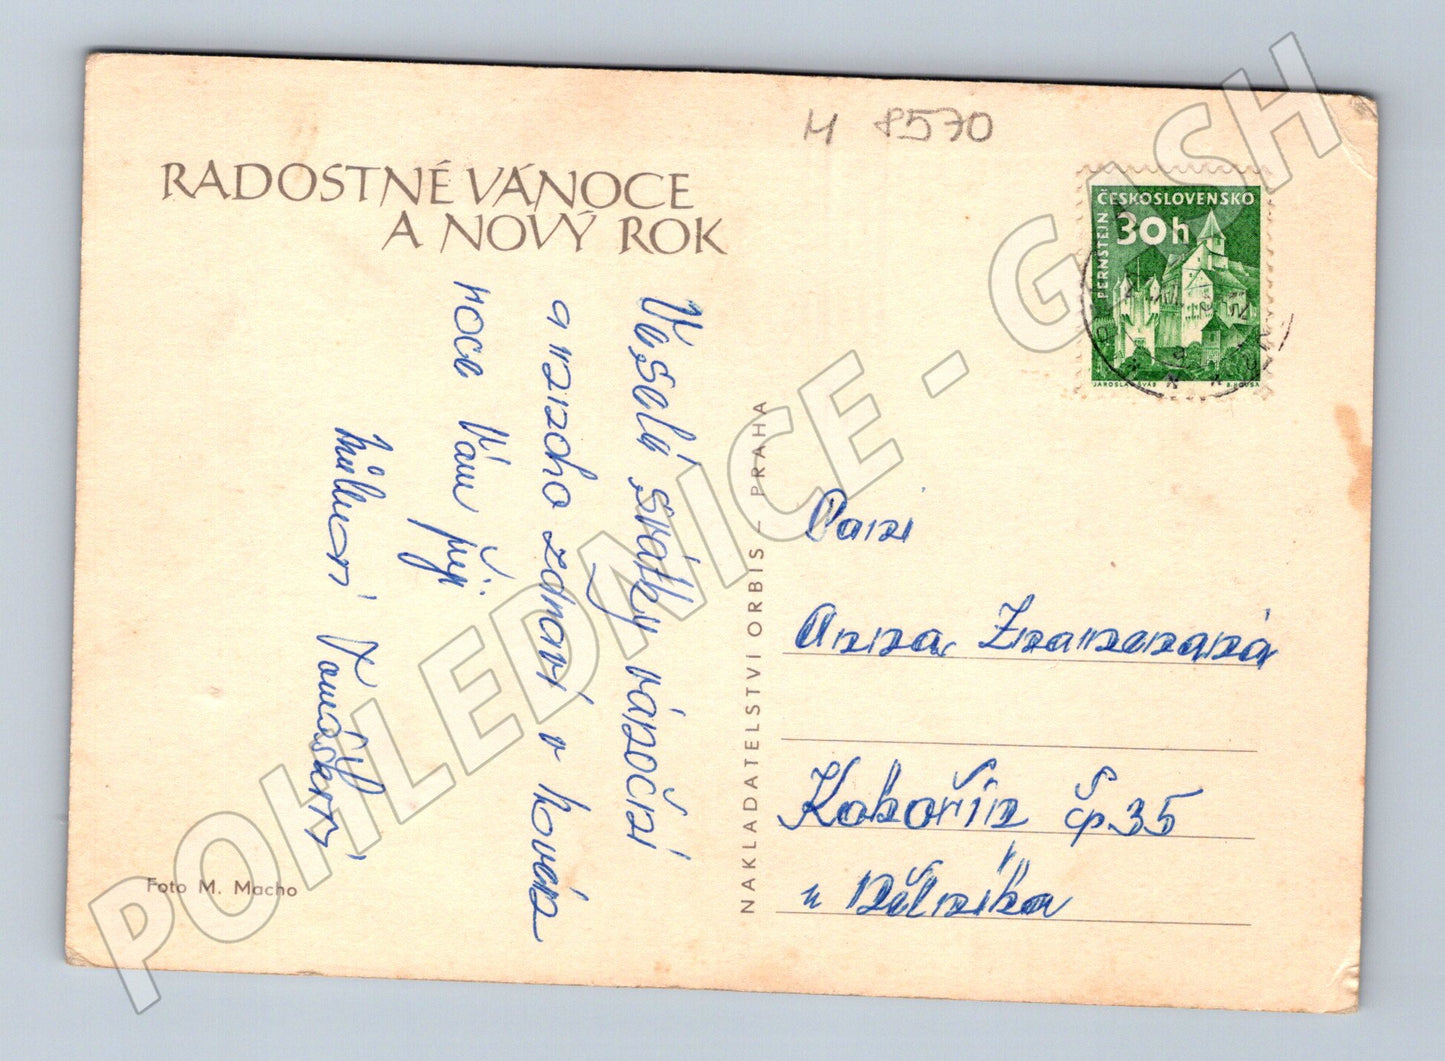 M 8570
RADOSTNÉ VÁNOCE
A NOVÝ ROK
ČESKOSLOVENSKO
30h
PERNŠTEJN
JAROSLAV ŠVÁB
B. HOUSA
Veselé svátky vánoční
a hodně zdraví v novém
roce Vám přeje
Tomáškovi
NAKLADATELSTVÍ ORBIS – PRAHA
Paní
Anna Znamenaná
Kobořín čp. 35
u Mělníka
Foto M. Macho
POHLEDNICE - GASH